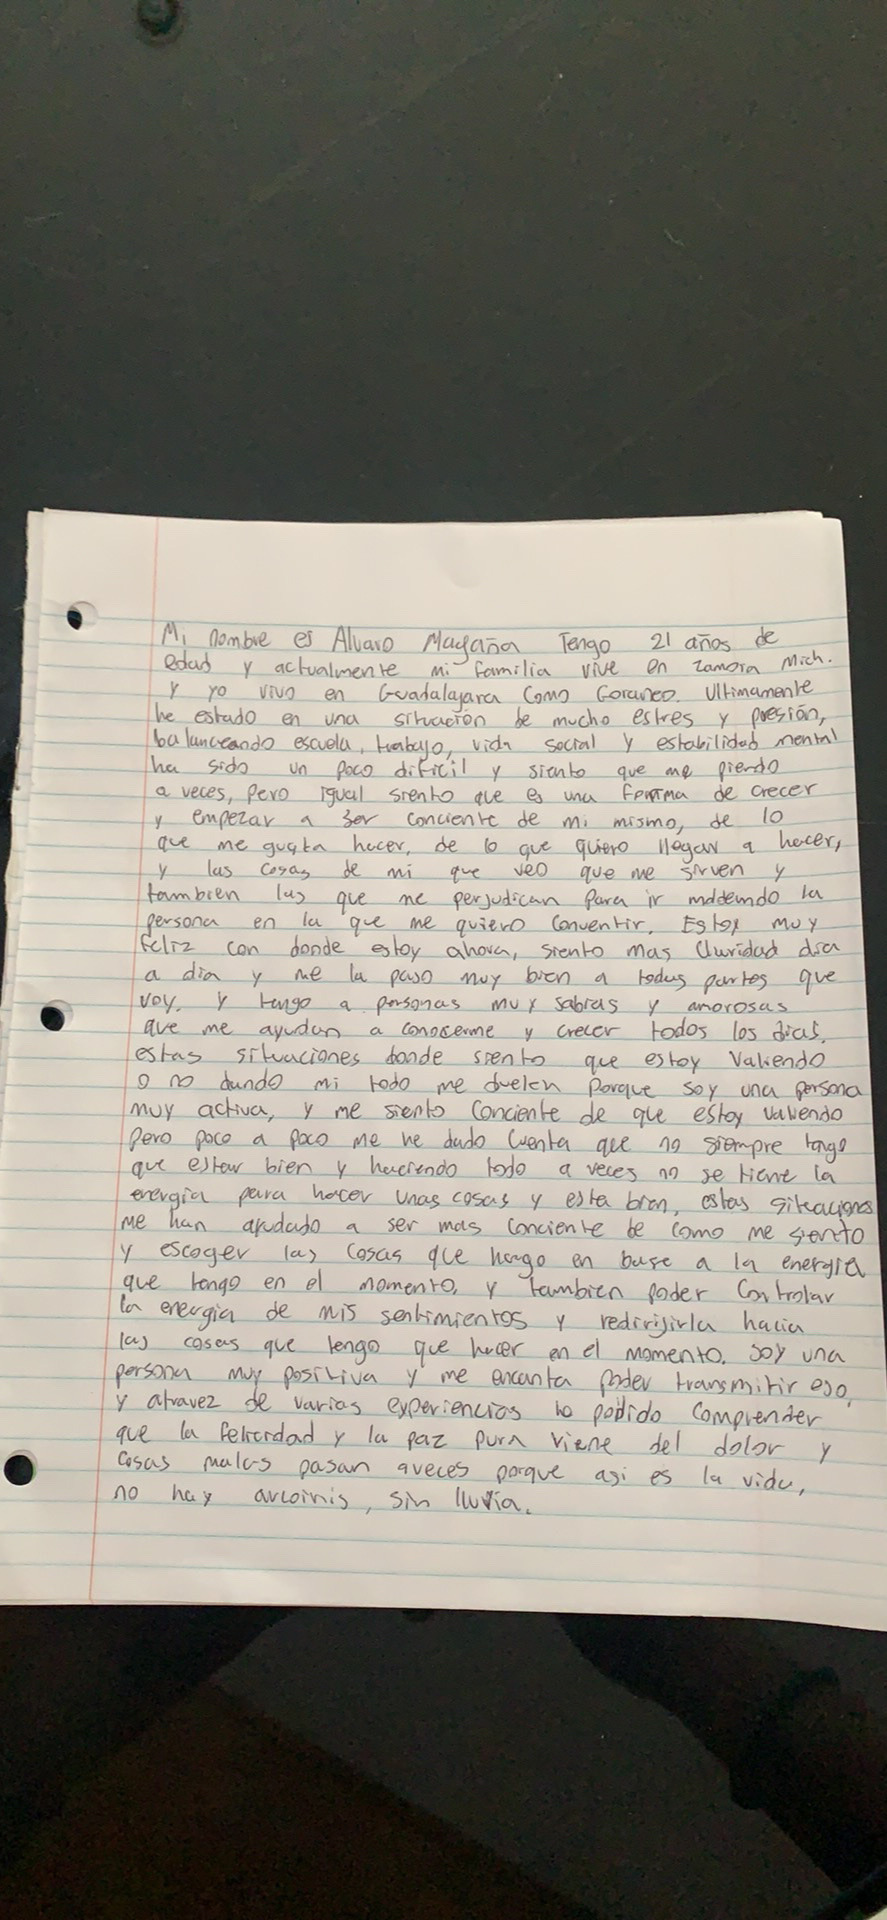 Mi nombre es Alvaro Magaña Tengo 21 años de
edad y actualmente mi familia vive en Zamora Mich.
y yo vivo en Guadalajara Como Foraneo. Ultimamente
he estado en una situación de mucho estres y presión,
balanceando escuela, trabajo, vida social y estabilidad mental
ha sido un poco dificil y siento que me pierdo
a veces, pero igual siento que es una forma de crecer
y empezar a ser conciente de mi mismo, de lo
que me gusta hacer, de lo que quiero llegar a hacer,
y las cosas de mi que veo que me sirven y
tambien las que me perjudican para ir moldeando la
persona en la que me quiero convertir. Estoy muy
feliz con donde estoy ahora, siento mas Claridad dia
a dia y me la paso muy bien a todas partes que
voy. y tengo a personas muy sabias y amorosas
que me ayudan a conocerme y crecer todos los dias.
estas situaciones donde siento que estoy Valiendo
o no dando mi todo me duelen porque soy una persona
muy activa, y me siento Conciente de que estoy valiendo
pero poco a poco me he dado Cuenta que no siempre tengo
que estar bien y haciendo todo a veces no se tiene la
energia para hacer unas cosas y esta bien, estas situaciones
me han ayudado a ser mas Conciente de como me siento
y escoger las cosas que hago en base a la energia
que tengo en el momento, y tambien poder Controlar
la energia de mis sentimientos y redirijirla hacia
las cosas que tengo que hacer en el momento. soy una
persona muy positiva y me encanta poder transmitir eso,
y atravez de varias experiencias he podido Comprender
que la felicidad y la paz pura viene del dolor y
cosas malas pasan aveces porque asi es la vida,
no hay arcoiris, sin lluvia.